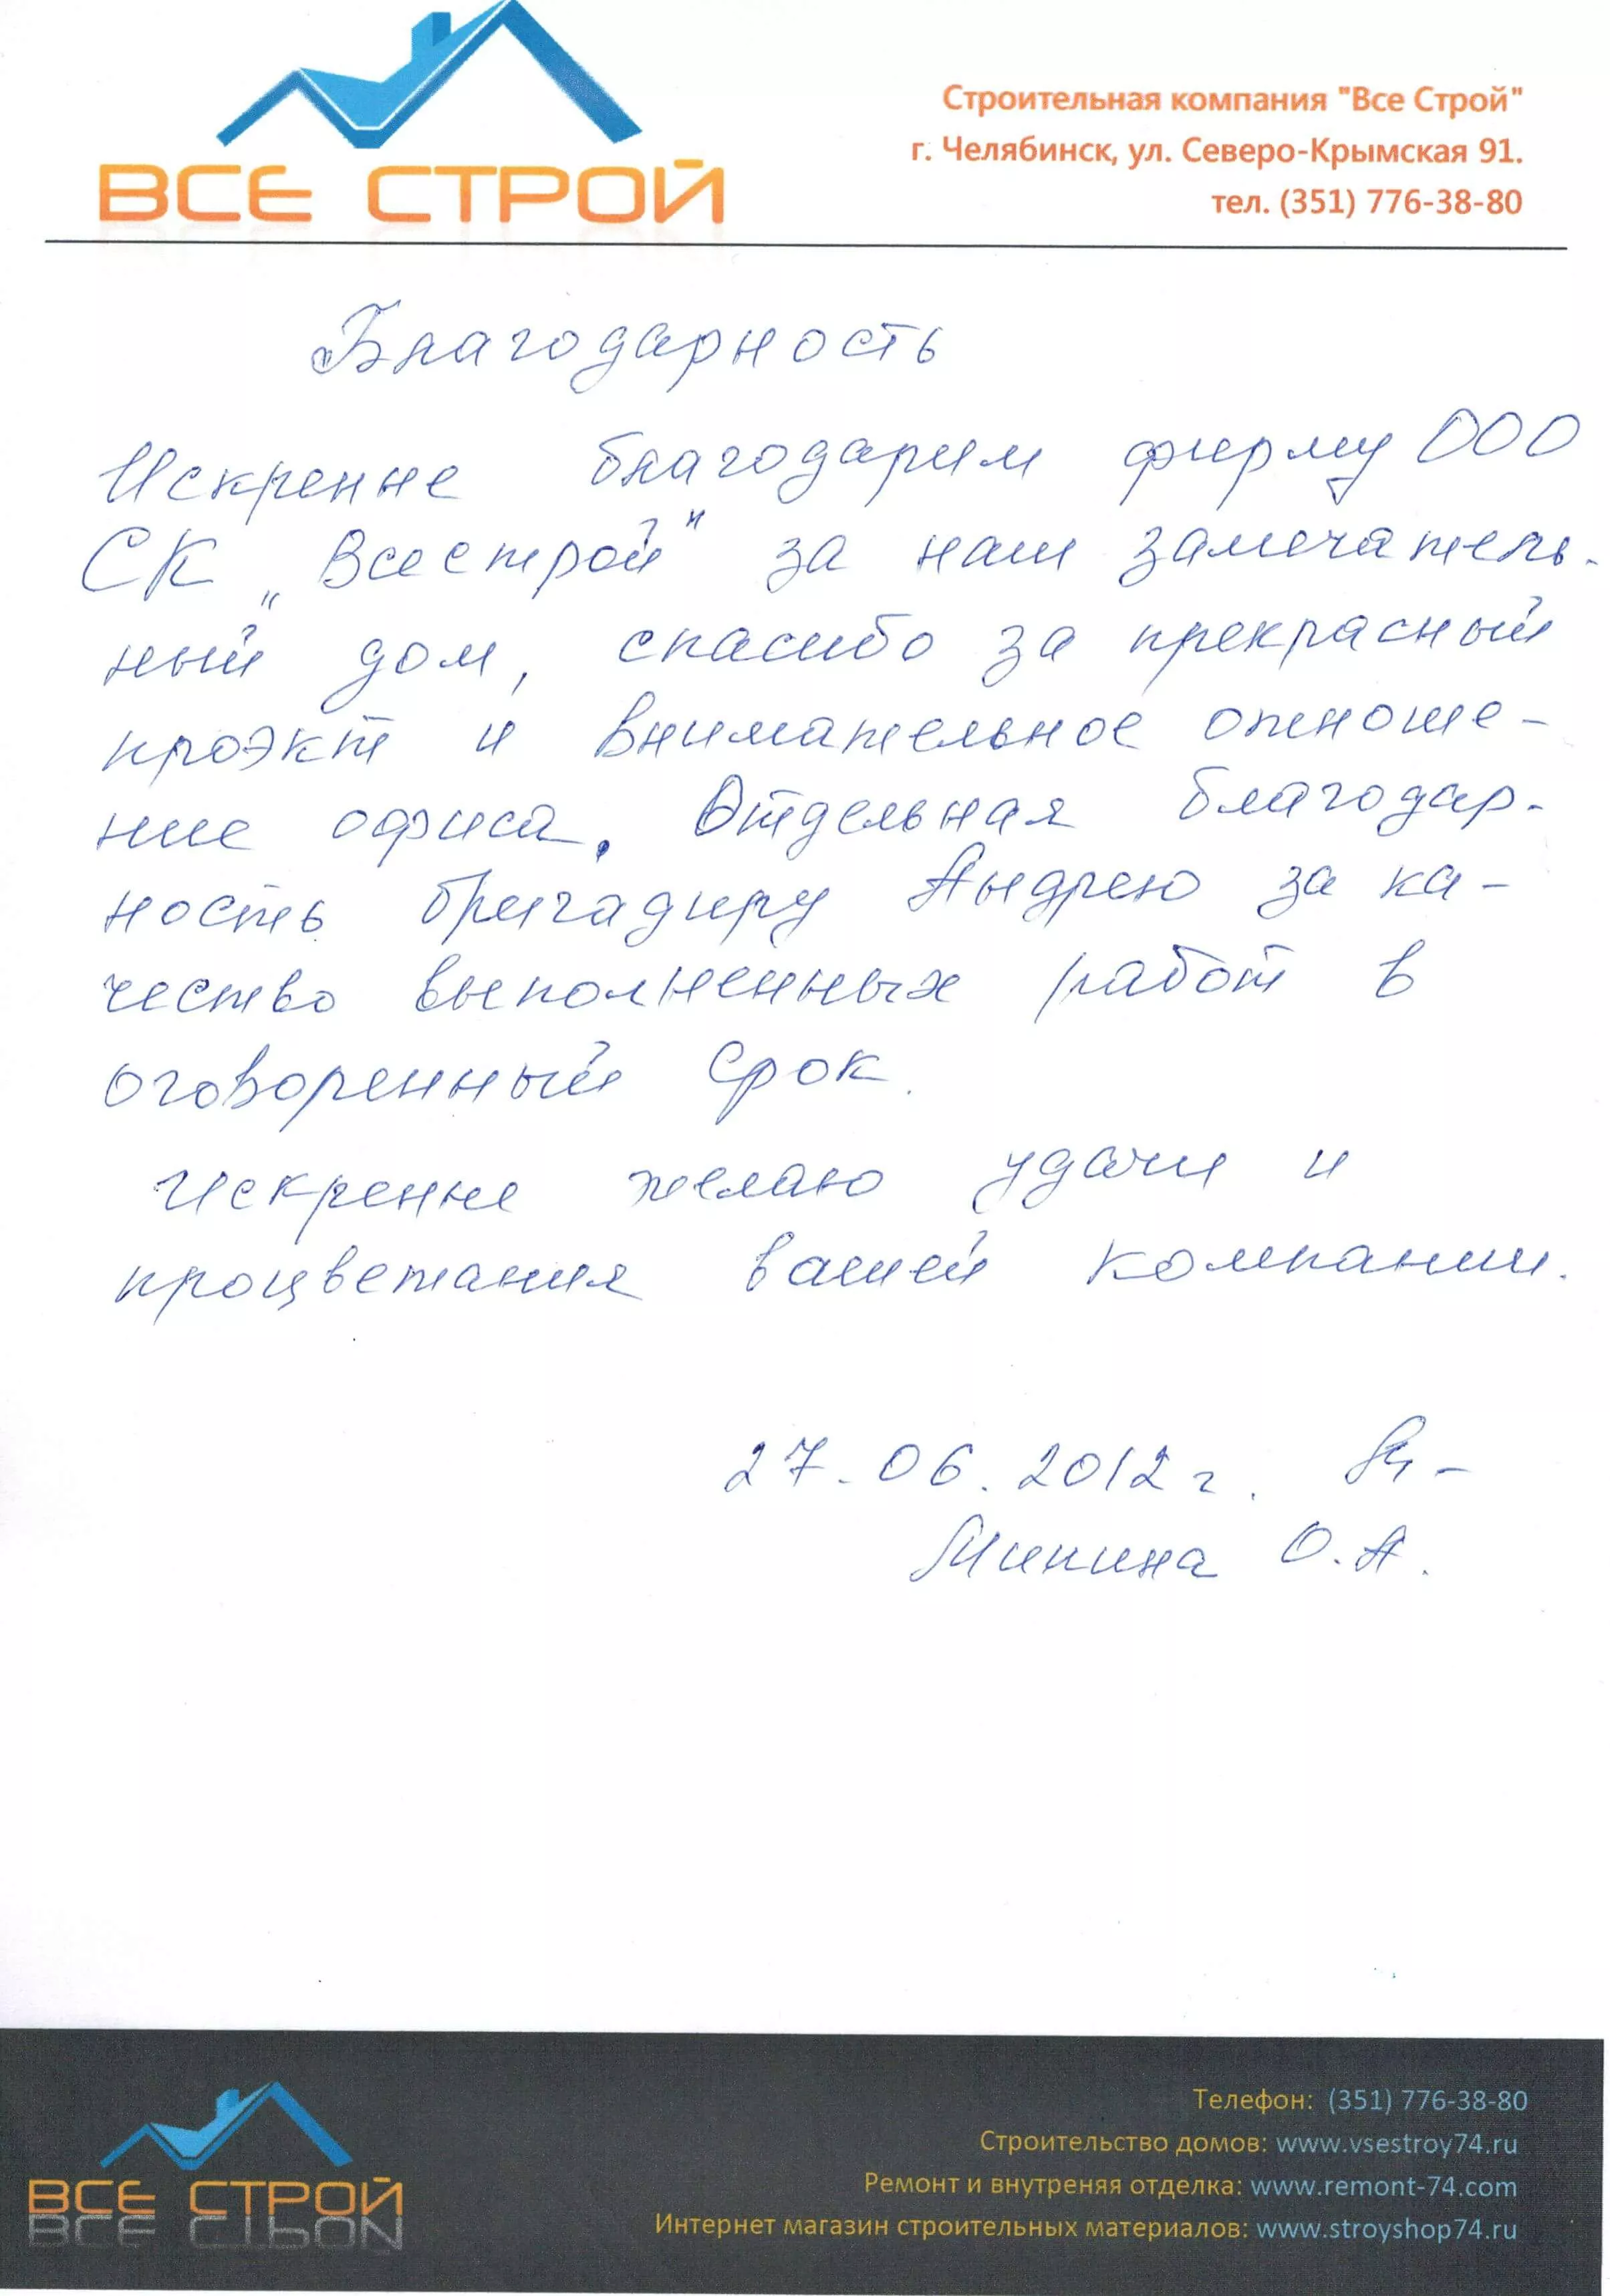 ВСЕ СТРОЙ
Строительная компания "Все Строй"
г. Челябинск, ул. Северо-Крымская 91.
тел. (351) 776-38-80
Благодарность
Искренне благодарим фирму ООО
СК „Всестрой" за наш замечатель-
ный дом, спасибо за прекрасный
проэкт и внимательное отноше-
ние офиса. Отдельная благодар-
ность бригадиру Андрею за ка-
чество выполненных работ в
оговоренный срок.
Искренне желаю удачи и
процветания вашей компании.
27.06.2012 г.
Минина О.А.
ВСЕ СТРОЙ
Телефон: (351) 776-38-80
Строительство домов: www.vsestroy74.ru
Ремонт и внутреняя отделка: www.remont-74.com
Интернет магазин строительных материалов: www.stroyshop74.ru